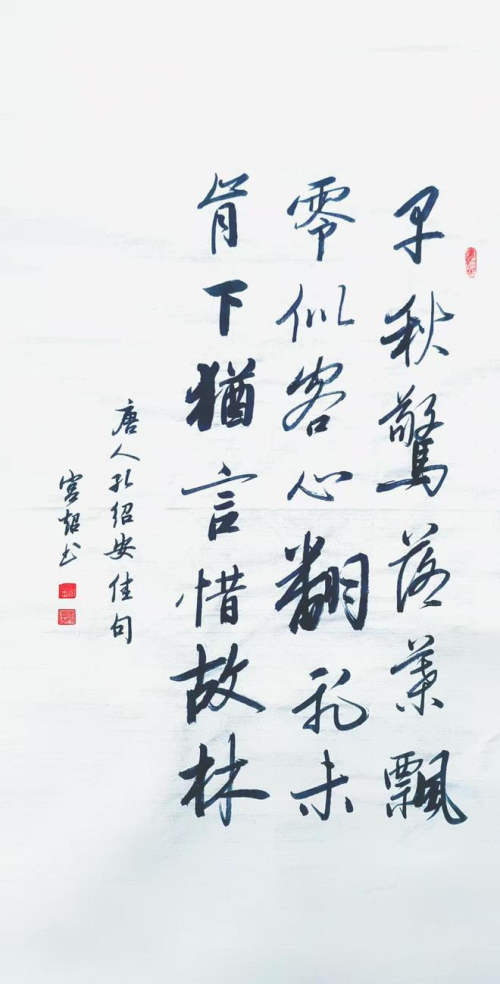 早秋驚落葉飄
零似客心翻飛未
肯下猶言惜故林
唐人孔紹安佳句
宫书